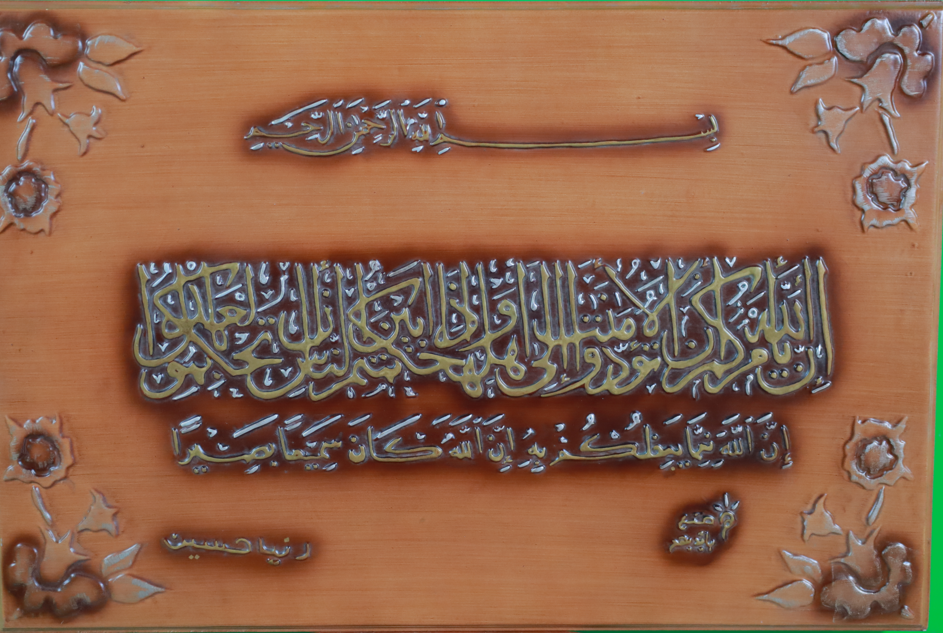 بسم الله الرحمن الرحيم
إن الله يأمركم أن تؤدوا الأمانات إلى أهلها وإذا حكمتم بين الناس أن تحكموا بالعدل
إِنَّ اللَّهَ نِعِمَّا يَعِظُكُم بِهِ إِنَّ اللَّهَ كَانَ سَمِيعًا بَصِيرًا
رنيا حسين